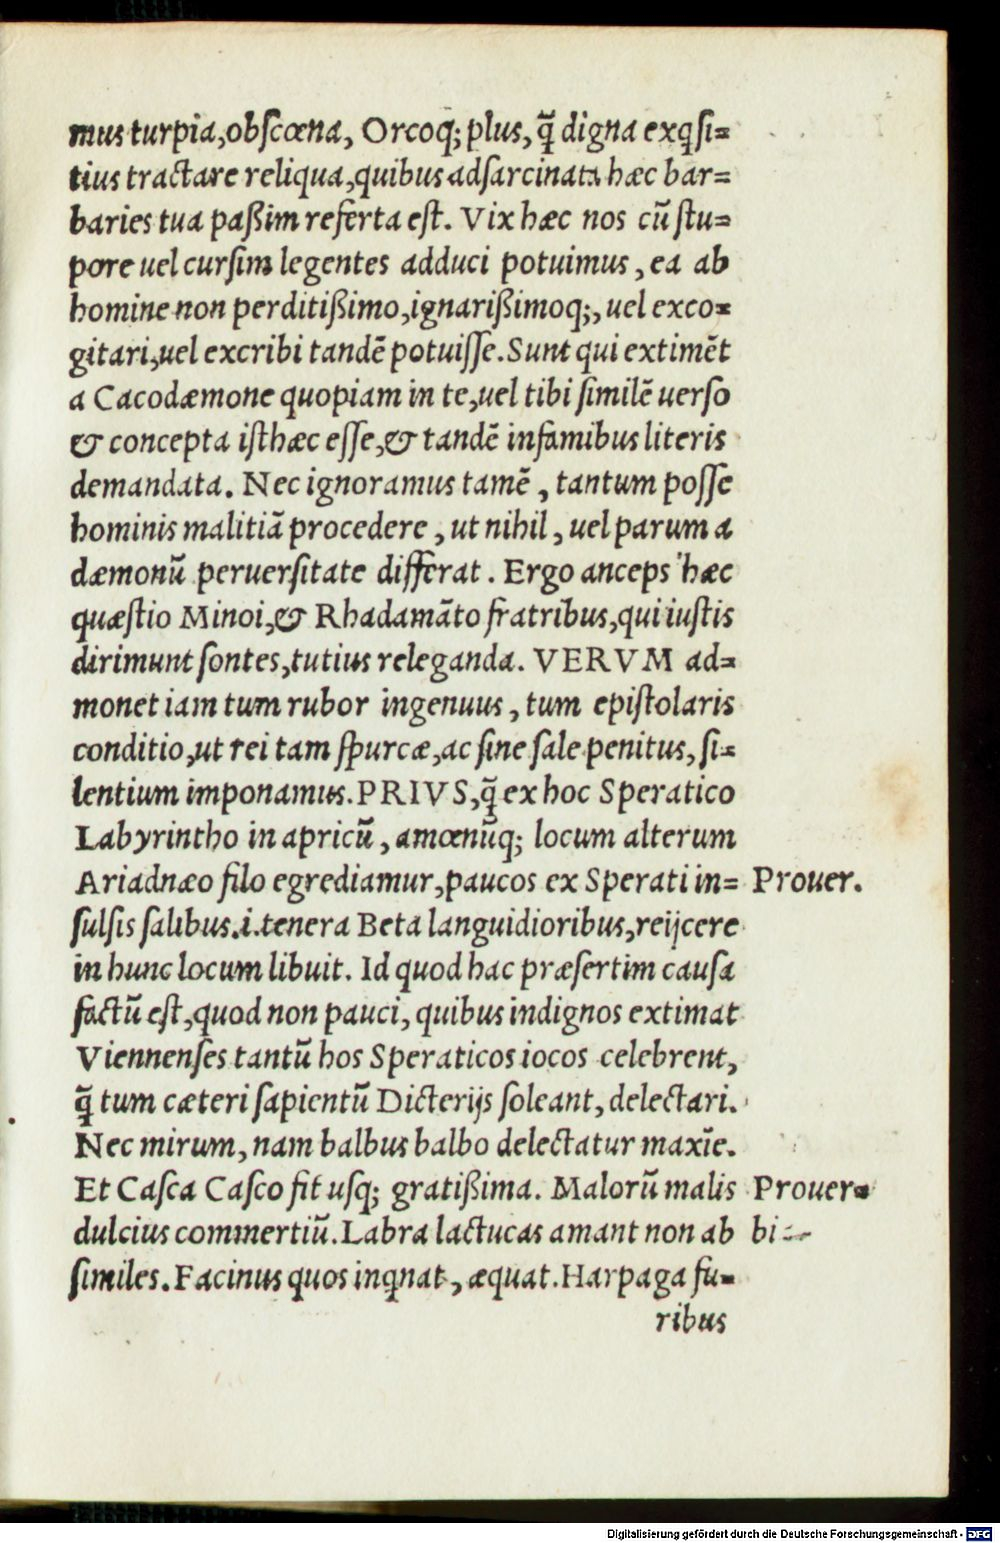 mus turpia, obſcœna, Orcoq; plus, q̃ digna exq̃ſi=
tius tractare reliqua, quibus adſarcinata hæc bar=
baries tua paßim referta eſt. Vix hæc nos cũ ſtu=
pore uel curſim legentes adduci potuimus, ea ab
homine non perditißimo, ignarißimoq;, uel exco=
gitari, uel excribi tandẽ potuiſſe. Sunt qui extimẽt
a Cacodæmone quopiam in te, uel tibi ſimilẽ uerſo
& concepta iſthæc eſſe, & tandẽ infamibus literis
demandata. Nec ignoramus tamẽ, tantum poſſe
hominis malitiã procedere, ut nihil, uel parum a
dæmonũ peruerſitate differat. Ergo anceps hæc
quæſtio Minoi, & Rhadamãto fratribus, qui iuſtis
dirimunt ſontes, tutius releganda. VERVM ad=
monet iam tum rubor ingenuus, tum epiſtolaris
conditio, ut rei tam ſpurcæ, ac ſine ſale penitus, ſi=
lentium imponamus. PRIVS, q̃ ex hoc Speratico
Labyrintho in apricũ, amœnũq; locum alterum
Ariadnæo filo egrediamur, paucos ex Sperati in= Prouer.
ſulſis ſalibus .i. tenera Beta languidioribus, reijcere
in hunc locum libuit. Id quod hac præſertim cauſa
factũ eſt, quod non pauci, quibus indignos extimat
Viennenſes tantũ hos Speraticos iocos celebrent,
q̃ tum cæteri ſapientũ Dicterijs ſoleant, delectari.
Nec mirum, nam balbus balbo delectatur maxĩe.
Et Caſca Caſco fit uſq; gratißima. Malorũ malis Prouer=
dulcius commertiũ. Labra lactucas amant non ab bi
ſimiles. Facinus quos inq̃nat, æquat. Harpaga fu=
ribus
Digitalisierung gefördert durch die Deutsche Forschungsgemeinschaft - DFG